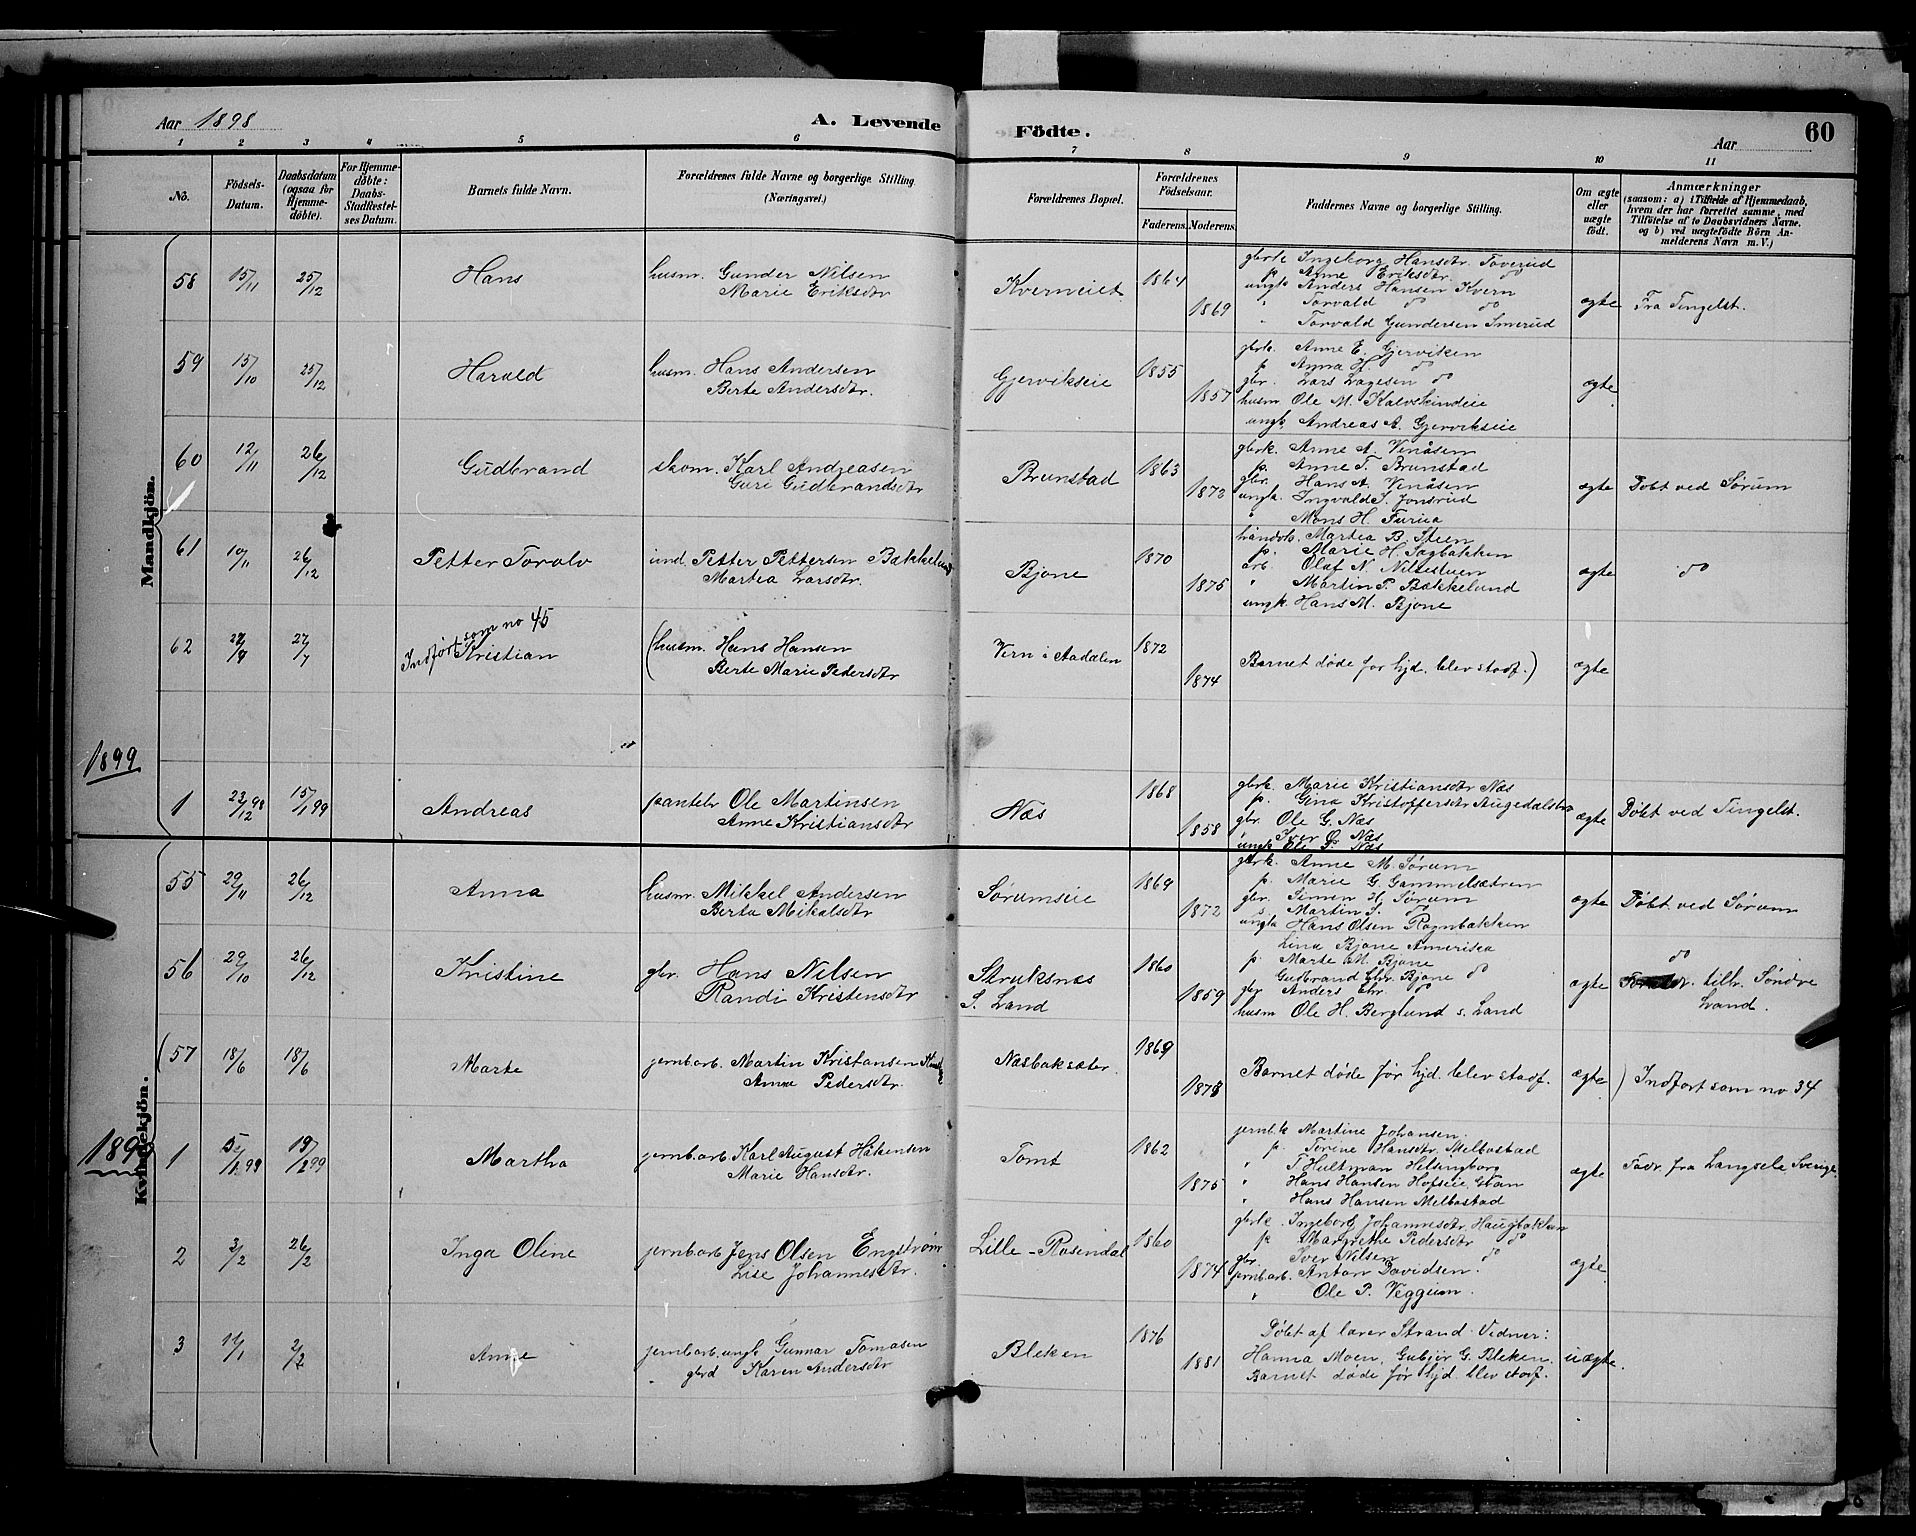 Aar 1898
A. Levende
Födte.
Aar
60
1 2 3 4 5 6 7 8 9 10 11
No.
Födsels-Datum.
Daabsdatum (ogsaa for Hjemmedöbte).
For Hjemmedöbte: Daabs-Stadfæstelses Datum.
Barnets fulde Navn.
Forældrenes fulde Navne og borgerlige Stilling. (Næringsvei.)
Forældrenes Bopæl.
Forældrenes Födselsaar.
Faderens. Moderens.
Faddernes Navne og borgerlige Stilling.
Om ægte eller uægte födt.
Anmærkninger
(saasom: a) i Tilfælde af Hjemmedaab, hvem der har forrettet samme, med Tilföielse af to Daabsvidners Navne. og b) ved uægtefödte Börn Anmelderens Navn m.V.)
Mandkjön.
58 15/11 25/12 Hans
husm. Gunder Nilsen
Marie Eriksdtr
Kverneiet 1864 1869
gbrk Ingeborg Hansdtr. Toverud
p. Anne Eriksdtr. do
ungk Anders Hansen Kvern
" Torvald do do
" Torvald Gundersen Smerud
ægte Fra Tingelst.
59 15/10 25/12 Harald
husm. Hans Andersen
Berte Andersdtr.
Gjervikseie 1855 1857
gbrk. Anne E. Gjerviken
p. Anna H. do
gbr. Lars Lagesen do
husm Ole M. Kalvskindeie
ungk. Andreas A. Gjervikseie
ægte
60 12/11 26/12 Gudbrand
skom. Karl Andreasen
Guri Gudbrandsdtr
Brunstad 1863 1872
gbrk. Anne A. Venåsen
p. Anne T. Brunstad
gbr. Hans A. Venåsen
ungk. Ingvald S. Jonsrud
" Mons H. Furua
ægte Døbt ved Sørum
61 10/11 26/12 Petter Toralv
ind. Petter Pettersen Bakkelund
Martea Larsdtr.
Bjone 1870 1875
håndvk. Martea B. Steen
p. Marie H. Sagbakken
arb. Olaf N. Nilsestuen
" Martin P. Bakkelund
ungk. Hans M. Bjone
ægte do
62 27/7 Indført som no 45 Kristian
(husm. Hans Hansen
Berte Marie Pedersdtr
Vern i Aadalen 1872 1874
Barnet døde før hjd. blev stadf.)
ægte
1899
1 23/12 98 15/1 99 Andreas
pantelr Ole Martinsen
Anne Kristiansdtr
Næs 1868 1858
gbrk. Marie Kristiansdtr Næs
p. Gina Kristoffersdtr Augedalsbro
gbr. Ole G. Næs
Iver O. Næs
ungk Ole P. Næs
ægte Døbt ved Tingelst.
Kvindekjön.
55 29/11 26/12 Anna
husm. Mikkel Andersen
Berta Mikalsdtr
Sørumseie 1869 1872
gbrk. Anne M. Sørum
p. Marie G. Gammelsætren
gbr. Simen H. Sørum
s. Martin S. do
ungk Hans Olsen Rognbakken
ægte Døbt ved Sørum
56 29/10 26/12 Kristine
gbr. Hans Nilsen
Randi Kristensdtr
Struksnæs
S. Land 1860 1859
Lina Bjone Amerika
p. Marte M. Bjone
Gudbrand Chr. Bjone do
gbr Anders Chr. do
husm Ole H. Berglund s. Land
ægte do
tilh. Søndre Land.
(57 18/6 18/6 Marte
jernb.arb. Martin Kristansen
Anne Pedersdtr.
Næsbaksæter. 1869 1878
Barnet døde før hjd. blev stadf.
ægte ) Indført som no 34
1899
1 5/1 99 19/2 99 Martha
jernb.arb. Karl August Håkensen
Marie Hansdtr.
Tomt 1862 1875
jernb.k Martine Johansen.
p. Torine Hansdtr. Melbostad
" T. Hultman Helsingborg
" Hans Hansen Hofseie, Gran
" Hans Hansen Melbostad
ægte Fadr. fra Langsele Sverige.
2 3/2 26/2 Inga Oline
jernb.arb Jens Olsen Engstrøm
Lise Johannesdtr.
Lille-Rosendal 1860 1874
gbrk. Ingeborg Johannesdtr. Haugbakken
p Margrethe Pedersdtr do
gbr. Iver Nilsen do
jernb.arb. Anton Davidsen.
" Ole P. Veggum.
ægte.
3 11/1 2/2 Anne
jernb.arb. ungk Gunnar Tomasen
" gbrd Karen Andersdtr
Bleken 1876 1881
Døbt af lærer Strand. Vidner:
Hanna Moen, Gubjør G. Bleken.
Barnet døde før hjd. blev stadf.
uægte.